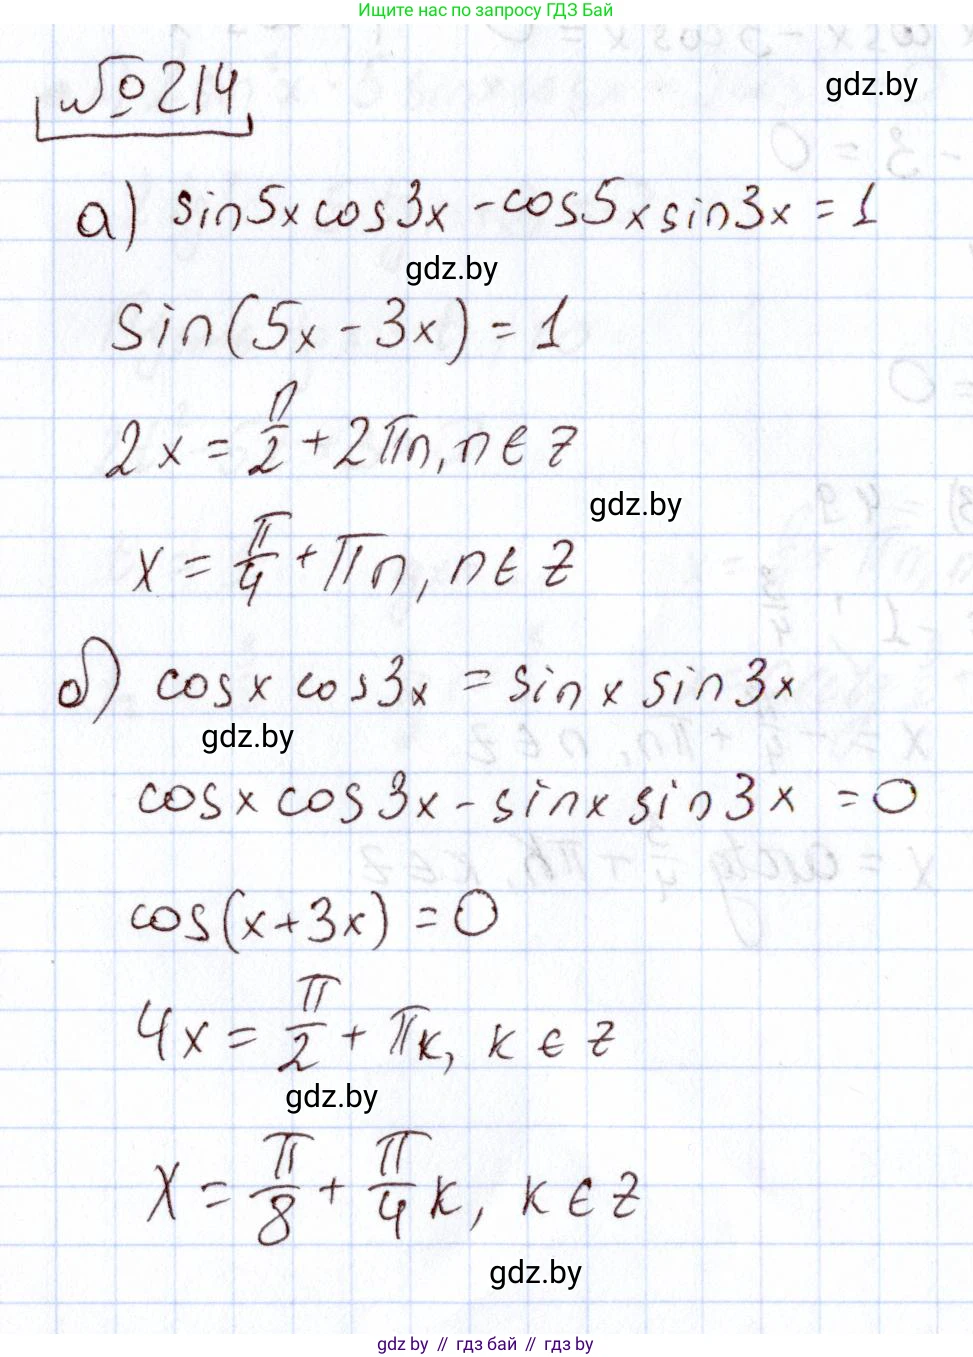 Ищите нас по запросу ГДЗ Бай
№214
gdz.by
а) sin5x cos3x - cos5x sin3x = 1
gdz.by
sin(5x - 3x) = 1
2x = π/2 + 2πn, n ∈ z
gdz.by
x = π/4 + πn, n ∈ z
б) cosx cos3x = sinx sin3x
gdz.by
cosx cos3x - sinx sin3x = 0
cos(x+3x) = 0
4x = π/2 + πk, k ∈ z
gdz.by
x = π/8 + π/4 k, k ∈ z
gdz.by
gdz by // гдз бай // гдз by